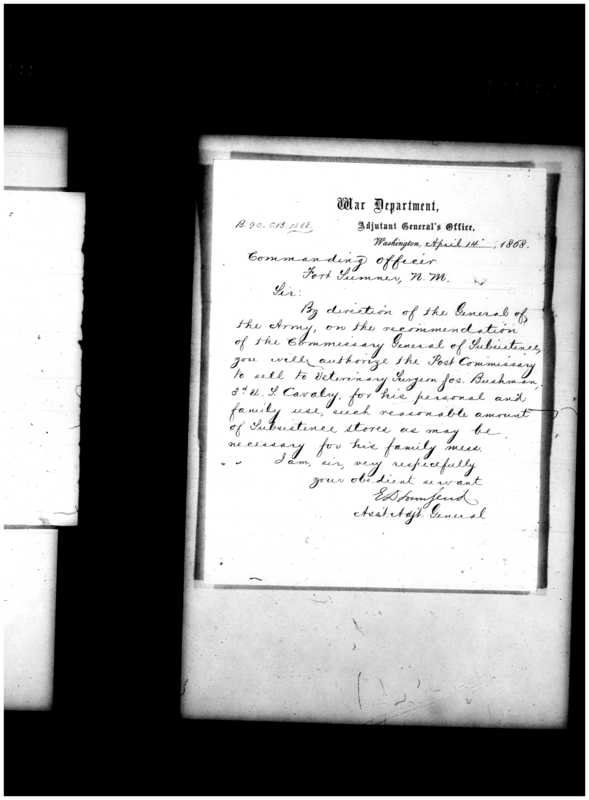 War Department,
Adjutant General's Office,
Washington, April 14", 1868.
B 90. C.B. 1868.
Commanding Officer
Fort Sumner, N. M.
Sir:
By direction of the General of
the Army, on the recommendation
of the Commissary General of Subsistence,
you will authorize the Post Commissary
to sell to Veterinary Surgeon Jos. Bushman,
3d U. S. Cavalry. for his personal and
family use, such reasonable amount
of Subsistence stores as may be
necessary for his family mess.
I am, sir, very respectfully
your obedient servant
E D Townsend
Asst Adjt General